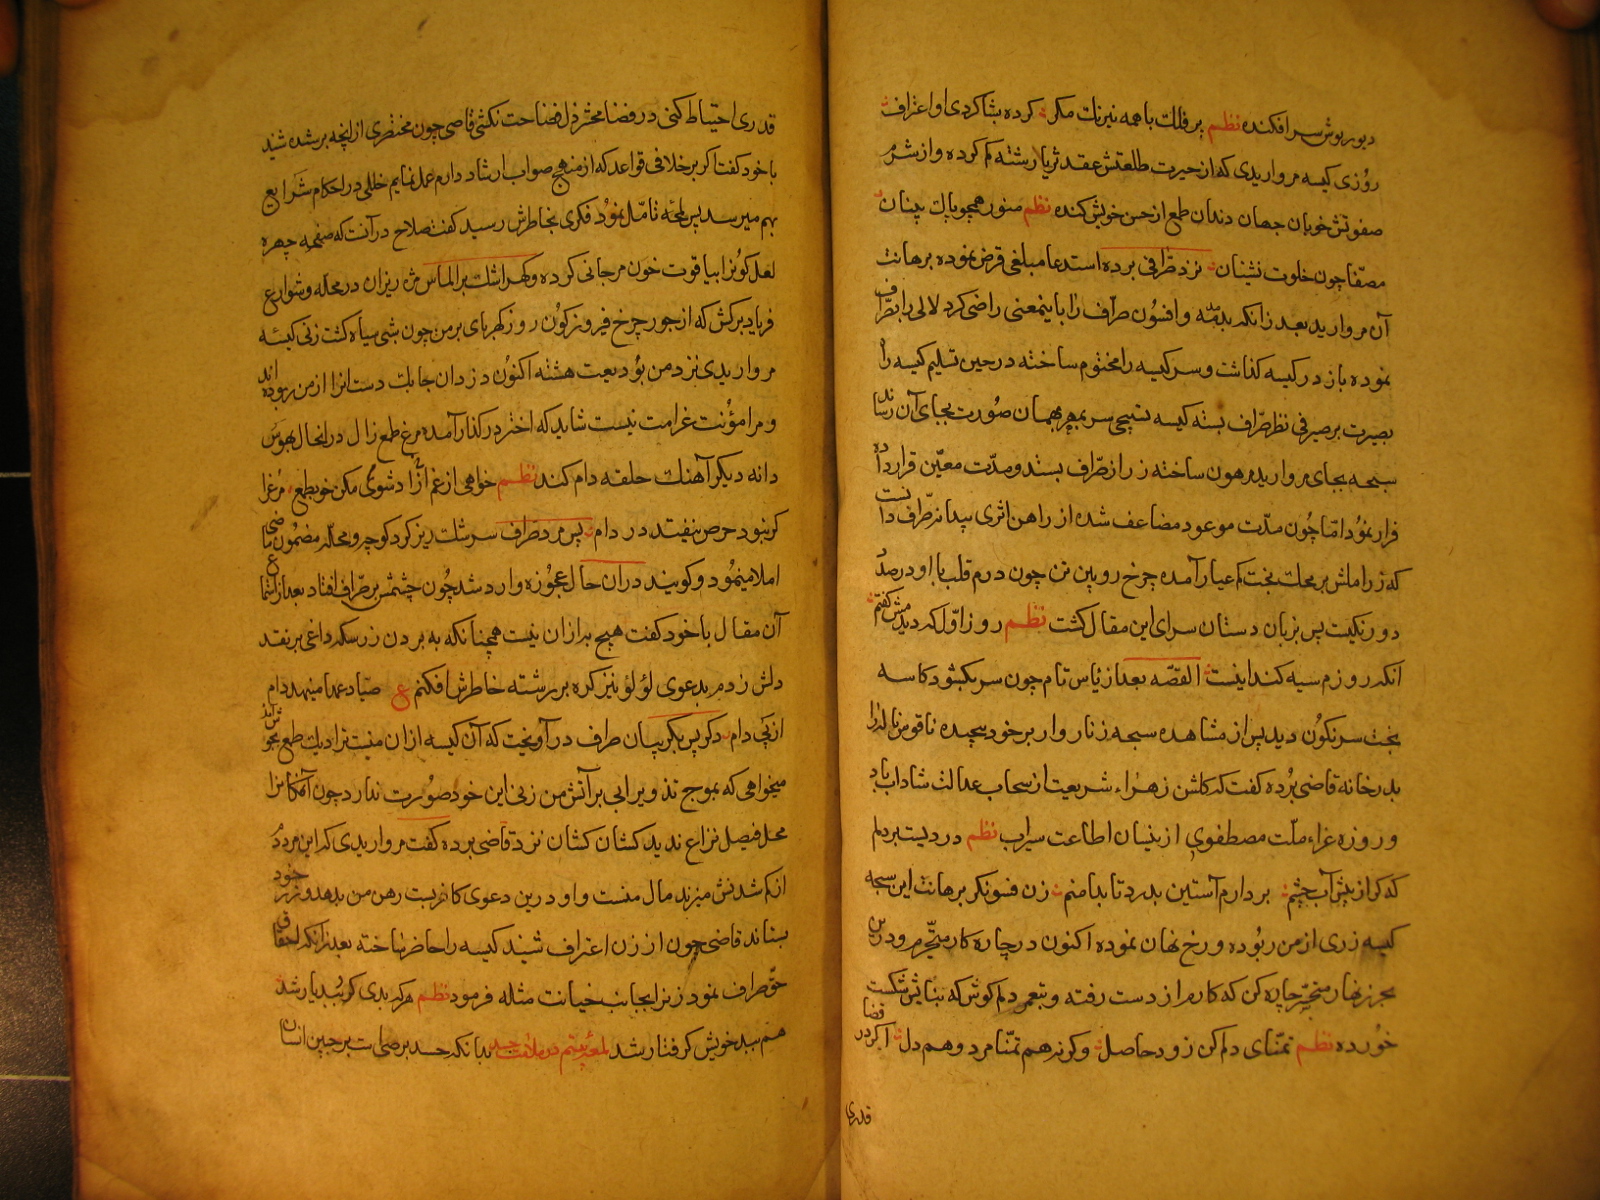 دیو ریوش سر افکنده نظم پر فلك باهمه نیرنك مكر كرده بشاكردی او اعتراف
روزی كیسه مرواریدی كه از حیرت طلعتش عقد ثریا رشته كم كرده و از شرم
صفوتش خوبان جهان دندان طمع از حسن خویش كنده نظم منور همچو پاك بینان
مصفا چون خلوت نشینان نزد صرافی برده استدعا مبلغی قرض نموده برهانت
آن مروارید بعد زانكه بدمدمه و افسون صراف را باینمعنی راضی كرد لالی را بصراف
نموده باز در كیسه كذاشت و سر كیسه را مختوم ساخته در حین تسلیم كیسه را
بصیرت برصیرفی نظر صراف بسته كیسه تسبیحی سر بمهر بهمان صورت بجای آن رساند
سبحه بجای مروارید مرهون ساخته زر از صراف بستد و مدت معین قرار داده
فرار نمود اما چون مدت موعود مضاعف شده از راهن اثری پیدا نه صراف دانست
كه زر املش بر محك بخت كم عیار آمده چرخ رویین تن چون درم قلب با او در صدد
دورنكیست پس بزبان دستان سرای این مقال كشت نظم روز اول كه دیدمش كفتم
انكه روزم سیه كند اینست القصه بعد از یاس تام چون سر بكشود كاسه
بخت سرنكون دید پس از مشاهده سبحه زنار وار بر خود پیچیده ناقوس نالان را
بدرخانه قاضی برده كفت كه كلشن زهراء شریعت از سحاب عدالت شاداب باد
و روزه غراء ملت مصطفوی از نیسان اطاعت سیراب نظم دردیست بردلم
كه كر از پیش آب چشم بردارم آستین بدرد تا بدامنم زن فسونكر برهانت این سبحه
كیسه زری از من ربوده و رخ نهان نموده اكنون در چاره كار متحیرم و درین
چاره كن كه كارم از دست رفته و بتعمیر دلم كوش كه بنایش شكست
خورده نظم تمنای دلم كن زود حاصل وكرنه هم تمنا مرد و هم دل اكر در قضا
قدری
قدری احتیاط كنی در فضا محشر ذل فضاحت نكشی قاضی چون مختصری از انچه برشده شنید
با خود كفت اكر برخلافی قواعد كه از منهج صواب ارشاد دارم عمل نمایم خللی در احكام شرایع
بهم میرسد پس لمحه تامل نمود فكری بخاطرش رسید كفت صلاح در آنست كه صفحه چهره
لعل كونرا بیاقوت خون مرجانی كرده و كهر اشك بر الماس مژه ریزان در محله و شوارع
فریاد بركش كه از جور چرخ فیروزه كون روز كهربای بر من چون شبی سیاه كشت زنی كیسه
مرواریدی نزد من بودیعت هشته اكنون دزدان چابك دست انرا از من ربوده اند
و مرا مؤنت غرامت نیست شاید كه اختر در كذار آمده مرغ طمع زال درانحال بهوس
دانه دیكر آهنك حلقه دام كند نظم خواهی از غم آزاد شوی مكن خو بطمع مرغرا
كر نبود حرص نیفتد در دام پس مرد صراف سرشك ریز كرد كوچه و محله مضمون ماضی
املا مینمود و كویند دران حال عجوزه وارد شد چون چشمش بر صراف افتاد بعد از استماع
آن مقال با خود كفت هیچ به ازان نیست همچنانكه به بردن زر سكه داغی بر نقد
دلش زدم بدعوی لؤلؤ نیز كره بر رشته خاطرش افكنم ع صیاد عمدا مینهد دام
از پی دام دكر پس بكریبان صراف در آویخت كه آن كیسه ازان منست نزدیك طمع
میخواهی كه بموج تذویر ابی بر آتش من زنی این خود صورت ندارد چون آنمكانرا
محل فیصل نزاع ندید كشان كشان نزد قاضی برده كفت مرواریدی كه این مرد دم
از كم شدنش میزند مال منست و او درین دعوی كاذبست رهن من بدهد و زر خود
بستاند قاضی چون از زن اعتراف شنید كیسه را حاضر ساخته بعد زانكه احقاق
حق صراف نمود زنرا بجانب خیانت مثله فرمود نظم هركه بدی كرد ببد یار شد
هم ببد خویش كرفتار شد لمعه بیستم در ملامت حسد بدانكه حسد برصی است بر جبین انسان